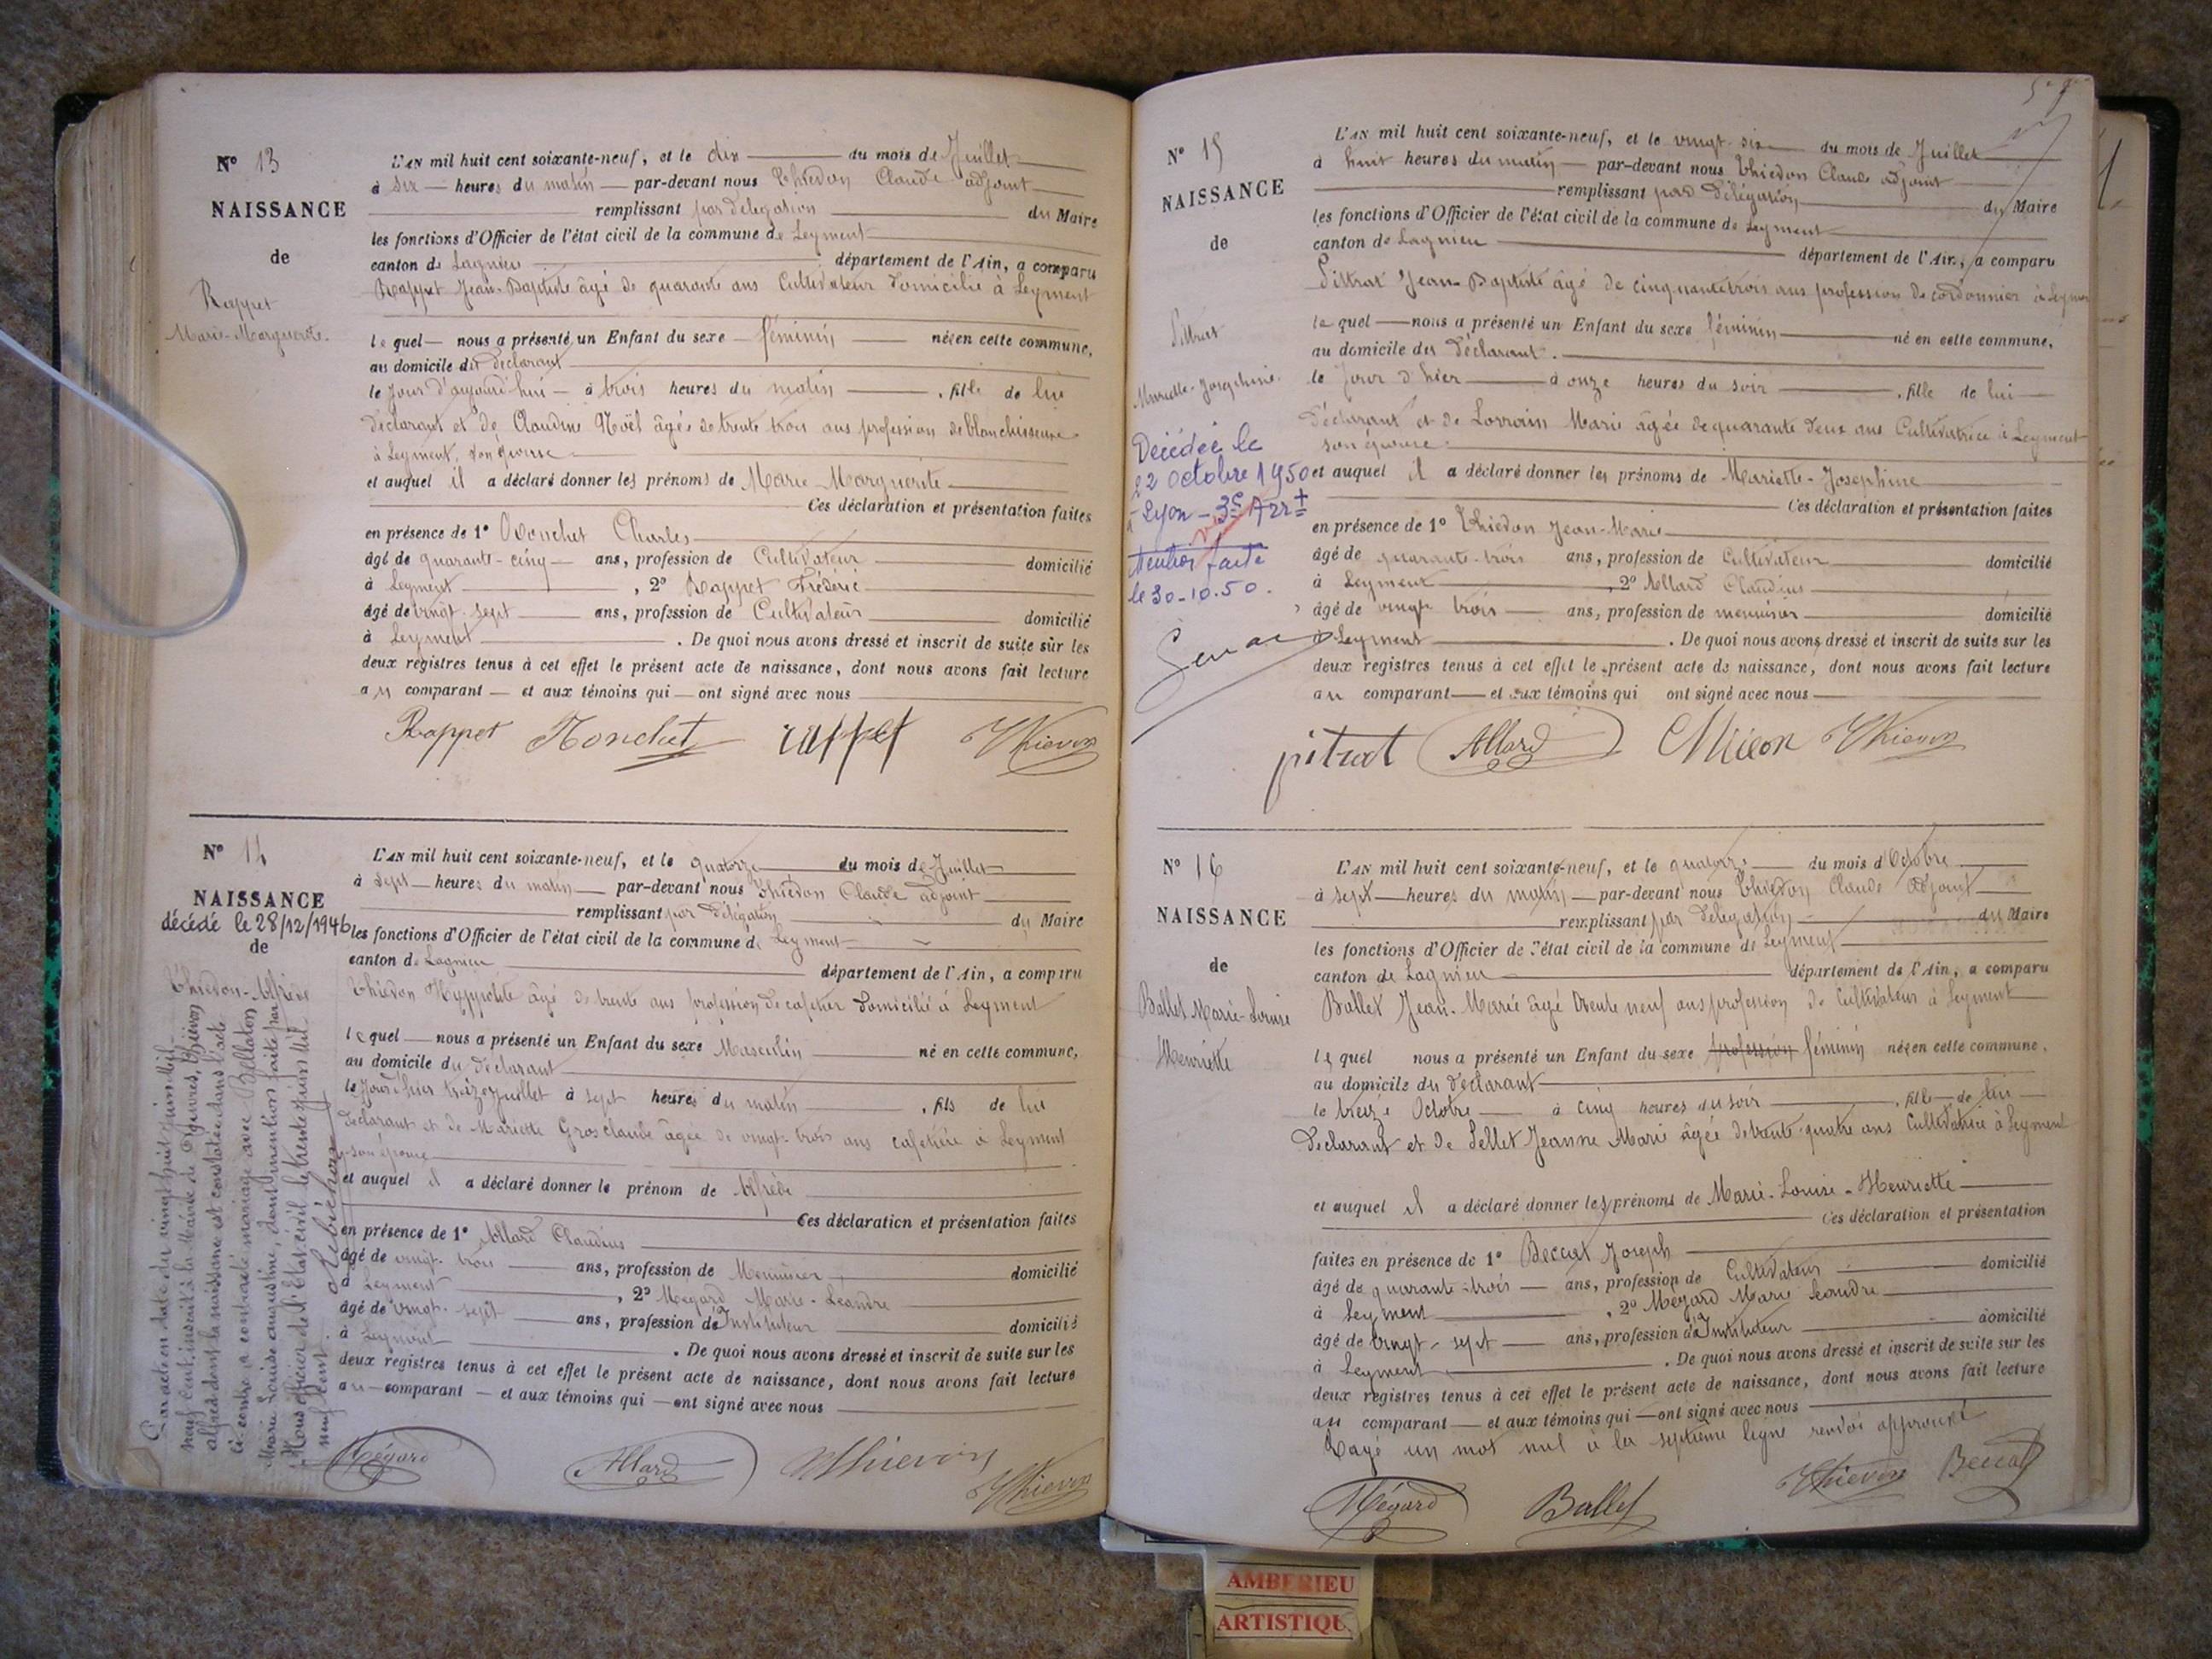 N° 13
NAISSANCE
de
Rappet
Marie-Marguerite.
L'AN mil huit cent soixante-neuf, et le dix du mois de Juillet
à six heures du matin par-devant nous Thievon Claude adjoint
remplissant par délégation du Maire
les fonctions d'Officier de l'état civil de la commune de Leyment
canton de Lagnieu département de l'Ain, a comparu
Rappet Jean-Baptiste âgé de quarante ans Cultivateur domicilié à Leyment
lequel nous a présenté un Enfant du sexe féminin né en cette commune,
au domicile du déclarant
le jour d'aujourd'hui à trois heures du matin, fille de lui
déclarant et de Claudine Noël âgée de trente trois ans profession de blanchisseuse
à Leyment, son épouse
et auquel il a déclaré donner les prénoms de Marie Marguerite
Ces déclaration et présentation faites
en présence de 1° Charles
âgé de quarante-cinq ans, profession de Cultivateur domicilié
à Leyment, 2° Rappet Frédéric
âgé de vingt-sept ans, profession de Cultivateur domicilié
à Leyment. De quoi nous avons dressé et inscrit de suite sur les
deux registres tenus à cet effet le présent acte de naissance, dont nous avons fait lecture
au comparant et aux témoins qui ont signé avec nous
Rappet Ronchet rappet Thievon
N° 14
NAISSANCE
décédé le 28/12/1946
de
Thievon-Alfred
L'AN mil huit cent soixante-neuf, et le quatorze du mois de Juillet
à sept heures du matin par-devant nous Thievon Claude adjoint
remplissant par délégation du Maire
les fonctions d'Officier de l'état civil de la commune de Leyment
canton de Lagnieu département de l'Ain, a comparu
Thievon Hyppolite âgé de trente ans profession de cafetier domicilié à Leyment
lequel nous a présenté un Enfant du sexe Masculin né en cette commune,
au domicile du déclarant
le jour d'hier treize juillet à sept heures du matin, fils de lui
déclarant et de Mariette Grosclaude âgée de vingt-trois ans cafetière à Leyment
son épouse
et auquel il a déclaré donner le prénom de Alfred
Ces déclaration et présentation faites
en présence de 1° Allard Claudius
âgé de vingt-trois ans, profession de Meunier domicilié
à Leyment, 2° Mégard Marie-Leandre
âgé de vingt-sept ans, profession d'Instituteur domicilié
à Leyment. De quoi nous avons dressé et inscrit de suite sur les
deux registres tenus à cet effet le présent acte de naissance, dont nous avons fait lecture
au comparant et aux témoins qui ont signé avec nous
Par acte en date du vingt huit juin mil
neuf cent, inscrit à la Mairie de Thievon
alfred dont la naissance est constatée dans l'acte
ci-contre a contracté mariage avec Bellaton
Marie Louise augustine, dont mention faite par
Nous officier de l'Etat civil le trente juin mil
neuf cent.
Mégard Allard Thievon Thievon
N° 15
NAISSANCE
de
Pittrat
Mariette-Josephine.
Décédée le
22 Octobre 1950
à Lyon - 3e Arrt
Mention faite
le 30-10-50.
L'AN mil huit cent soixante-neuf, et le vingt-six du mois de Juillet
à huit heures du matin par-devant nous Thievon Claude adjoint
remplissant par délégation du Maire
les fonctions d'Officier de l'état civil de la commune de Leyment
canton de Lagnieu département de l'Ain, a comparu
Pittrat Jean-Baptiste âgé de cinquante trois ans profession de cordonnier à Leyment
lequel nous a présenté un Enfant du sexe féminin né en cette commune,
au domicile du déclarant.
le jour d'hier à onze heures du soir, fille de lui
déclarant et de Lorrain Marie âgée de quarante deux ans Cultivatrice à Leyment
son épouse
et auquel il a déclaré donner les prénoms de Mariette-Josephine
Ces déclaration et présentation faites
en présence de 1° Thievon Jean-Marie
âgé de quarante-trois ans, profession de Cultivateur domicilié
à Leyment, 2° Allard Claudius
âgé de vingt trois ans, profession de meunier domicilié
à Leyment. De quoi nous avons dressé et inscrit de suite sur les
deux registres tenus à cet effet le présent acte de naissance, dont nous avons fait lecture
au comparant et aux témoins qui ont signé avec nous
pitrat Allard Thievon
N° 16
NAISSANCE
de
Ballet Marie-Louise
Henriette
L'AN mil huit cent soixante-neuf, et le quatorze du mois d'Octobre
à sept heures du matin par-devant nous Thievon Claude adjoint
remplissant par délégation du Maire
les fonctions d'Officier de l'état civil de la commune de Leyment
canton de Lagnieu département de l'Ain, a comparu
Ballet Jean-Marie âgé trente neuf ans profession de Cultivateur à Leyment
lequel nous a présenté un Enfant du sexe profession féminin née en cette commune,
au domicile du déclarant
le treize Octobre à cinq heures du soir, fille de lui
déclarant et de Pellet Jeanne Marie âgée de trente-quatre ans Cultivatrice à Leyment
et auquel il a déclaré donner les prénoms de Marie-Louise-Henriette
Ces déclaration et présentation
faites en présence de 1° Beccat Joseph
âgé de quarante-trois ans, profession de Cultivateur domicilié
à Leyment, 2° Mégard Marie Leandre
âgé de vingt-sept ans, profession d'Instituteur domicilié
à Leyment. De quoi nous avons dressé et inscrit de suite sur les
deux registres tenus à cet effet le présent acte de naissance, dont nous avons fait lecture
au comparant et aux témoins qui ont signé avec nous
Rayé un mot nul à la septième ligne renvoi approuvé
Mégard Ballet Thievon Beccat
AMBERIEU
ARTISTIQUE